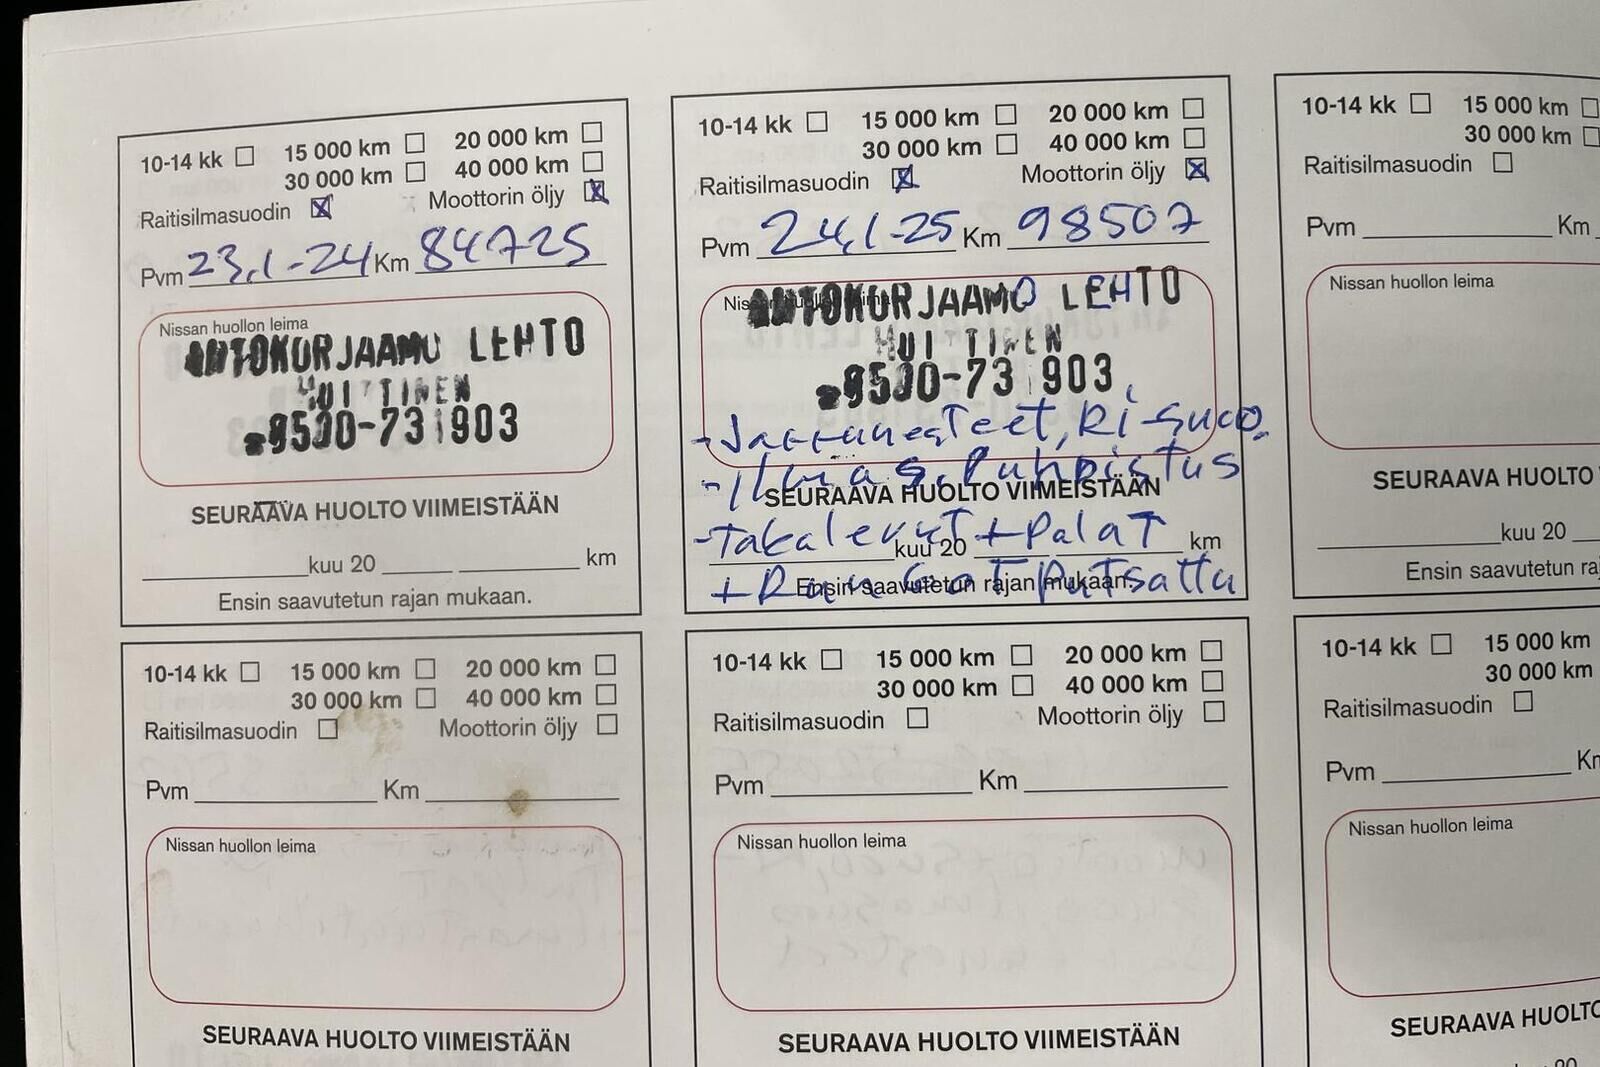 10-14 kk 15 000 km 20 000 km
30 000 km 40 000 km
Raitisilmasuodin Moottorin öljy
Pvm 23.1-24 Km 84725
Nissan huollon leima
AUTOKORJAAMO LEHTO
HUITTINEN
0500-731903
SEURAAVA HUOLTO VIIMEISTÄÄN
kuu 20 km
Ensin saavutetun rajan mukaan.
10-14 kk 15 000 km 20 000 km
30 000 km 40 000 km
Raitisilmasuodin Moottorin öljy
Pvm 24.1-25 Km 98507
Nissan huollon leima
AUTOKORJAAMO LEHTO
HUITTINEN
0500-731903
-Jarrunesteet, Ri-suod.
-Ilmas. Puhdistus
SEURAAVA HUOLTO VIIMEISTÄÄN
-Takalevyt + Palat
kuu 20 km
Ensin saavutetun rajan mukaan.
+ Putsattu
10-14 kk 15 000 km
30 000 km
Raitisilmasuodin
Pvm Km
Nissan huollon leima
SEURAAVA HUOLTO
kuu 20
Ensin saavutetun
10-14 kk 15 000 km 20 000 km
30 000 km 40 000 km
Raitisilmasuodin Moottorin öljy
Pvm Km
Nissan huollon leima
SEURAAVA HUOLTO VIIMEISTÄÄN
10-14 kk 15 000 km 20 000 km
30 000 km 40 000 km
Raitisilmasuodin Moottorin öljy
Pvm Km
Nissan huollon leima
SEURAAVA HUOLTO VIIMEISTÄÄN
10-14 kk 15 000 km
30 000 km
Raitisilmasuodin
Pvm
Nissan huollon leima
SEURAAVA HUOLTO